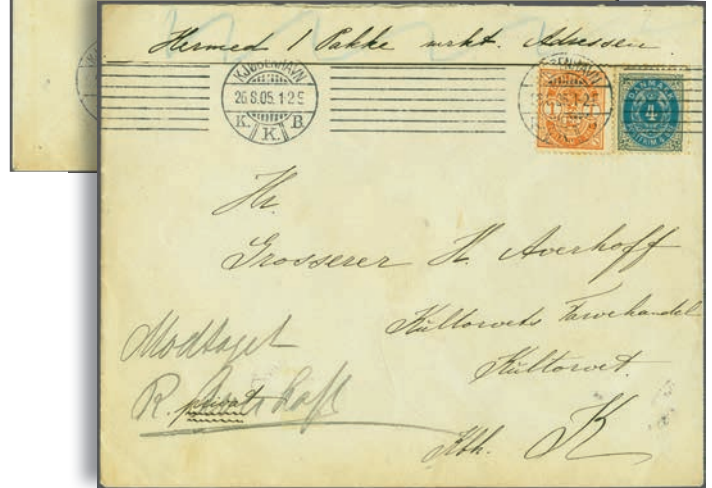 Hermed 1 Pakke mrkt. Adressen
KJØBENHAVN
26.8.05. 1-2 E
K. K. B
KJØBENHAVN
DANMARK
4
Hr.
Grosserer H. Averhoff
Kultorvets Farvehandel
Kultorvet.
Modtaget
R. Averhoff
privat
Kbh. K